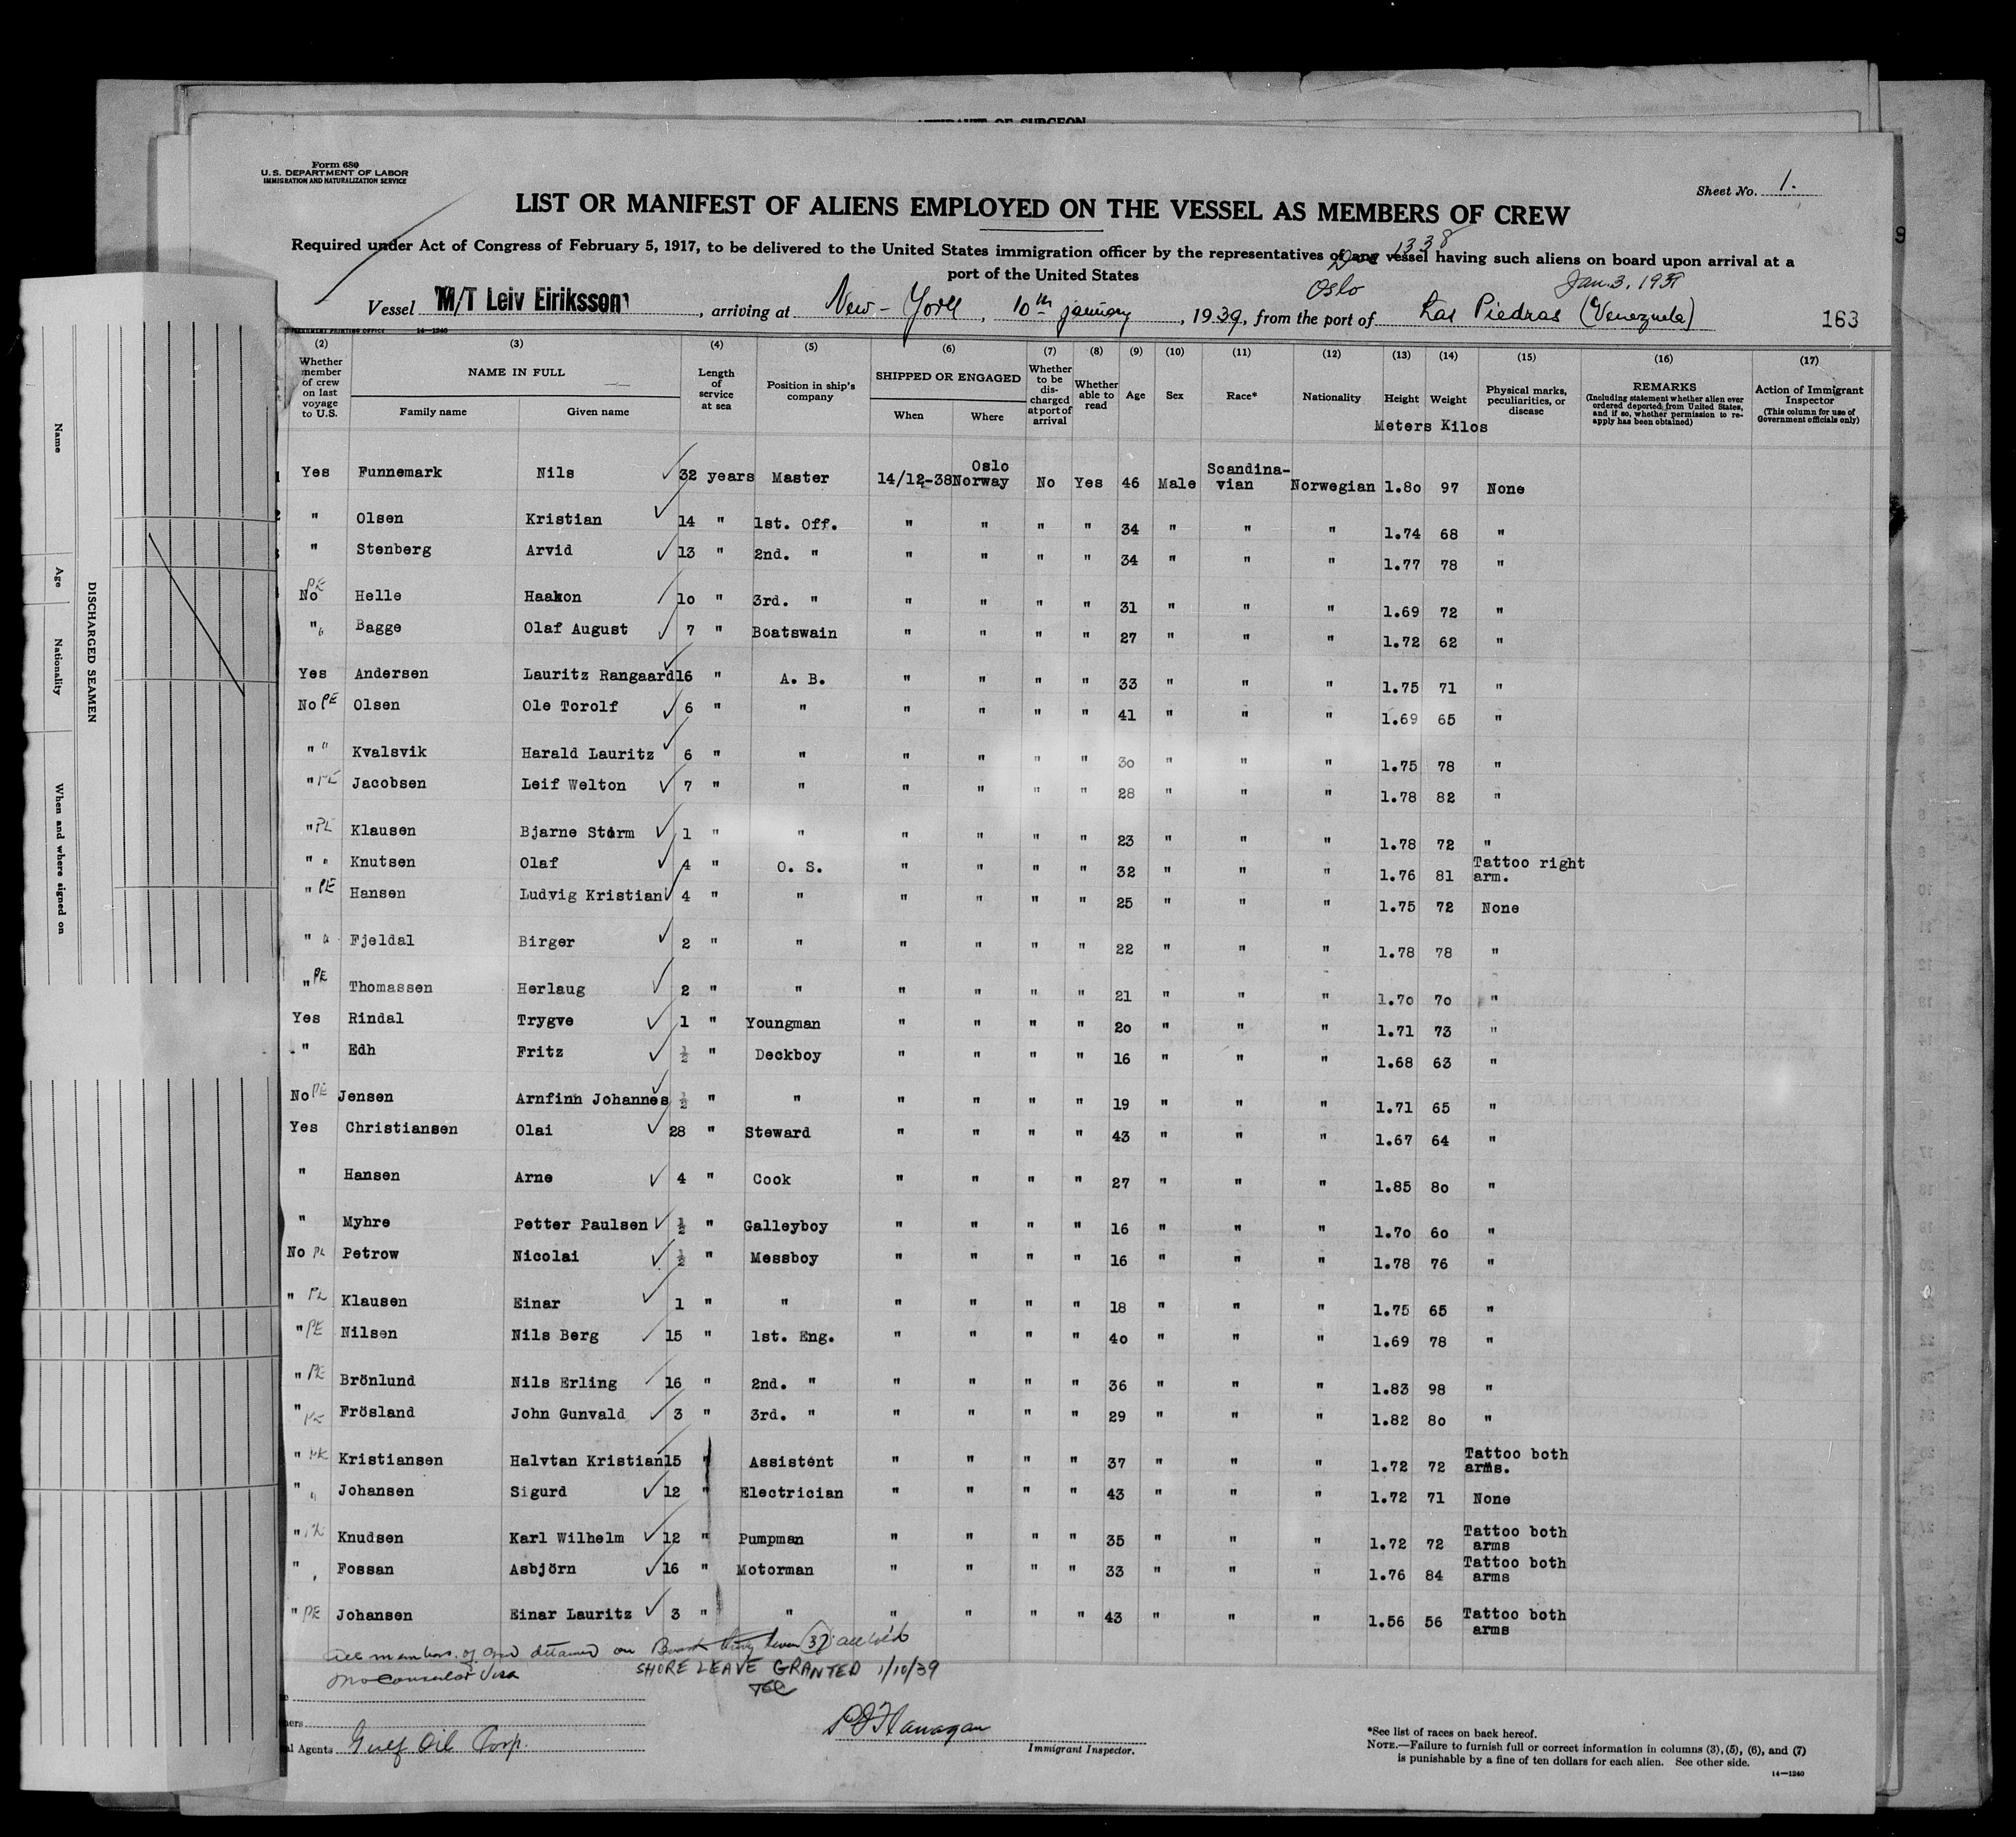 Form 680
U.S. DEPARTMENT OF LABOR
IMMIGRATION AND NATURALIZATION SERVICE
Sheet No. 1.
LIST OR MANIFEST OF ALIENS EMPLOYED ON THE VESSEL AS MEMBERS OF CREW
Required under Act of Congress of February 5, 1917, to be delivered to the United States immigration officer by the representatives of any vessel having such aliens on board upon arrival at a
port of the United States
Oslo Jan. 3, 1939
Vessel "M/T Leiv Eiriksson", arriving at New-York, 10th january, 1939, from the port of Las Piedras (Venezuela)
163
14-1240
(2) (3) (4) (5) (6) (7) (8) (9) (10) (11) (12) (13) (14) (15) (16) (17)
Whether member of crew on last voyage to U.S. NAME IN FULL Family name Given name Length of service at sea Position in ship's company SHIPPED OR ENGAGED When Where Whether to be discharged at port of arrival Whether able to read Age Sex Race* Nationality Height Weight Physical marks, peculiarities, or disease REMARKS (Including statement whether alien ever ordered deported from United States, and if so, whether permission to reapply has been obtained) Action of Immigrant Inspector (This column for use of Government officials only)
Meters Kilos
Yes Funnemark Nils 32 years Master 14/12-38 Oslo Norway No Yes 46 Male Scandina-vian Norwegian 1.80 97 None
" Olsen Kristian 14 " 1st. Off. " " " " 34 " " " 1.74 68 "
" Stenberg Arvid 13 " 2nd. " " " " " 34 " " " 1.77 78 "
No PE Helle Haakon 10 " 3rd. " " " " " 31 " " " 1.69 72 "
" Bagge Olaf August 7 " Boatswain " " " " 27 " " " 1.72 62 "
Yes Andersen Lauritz Rangaard 16 " A. B. " " " " 33 " " " 1.75 71 "
No PE Olsen Ole Torolf 6 " " " " " " 41 " " " 1.69 65 "
" " Kvalsvik Harald Lauritz 6 " " " " " " 30 " " " 1.75 78 "
" PE Jacobsen Leif Welton 7 " " " " " " 28 " " " 1.78 82 "
" PE Klausen Bjarne Storm 1 " " " " " " 23 " " " 1.78 72 "
" " Knutsen Olaf 4 " O. S. " " " " 32 " " " 1.76 81 Tattoo right arm.
" PE Hansen Ludvig Kristian 4 " " " " " " 25 " " " 1.75 72 None
" " Fjeldal Birger 2 " " " " " " 22 " " " 1.78 78 "
" PE Thomassen Herlaug 2 " " " " " " 21 " " " 1.70 70 "
Yes Rindal Trygve 1 " Youngman " " " " 20 " " " 1.71 73 "
" Edh Fritz ½ " Deckboy " " " " 16 " " " 1.68 63 "
No PE Jensen Arnfinn Johannes ½ " " " " " " 19 " " " 1.71 65 "
Yes Christiansen Olai 28 " Steward " " " " 43 " " " 1.67 64 "
" Hansen Arne 4 " Cook " " " " 27 " " " 1.85 80 "
" Myhre Petter Paulsen ½ " Galleyboy " " " " 16 " " " 1.70 60 "
No PE Petrow Nicolai ½ " Messboy " " " " 16 " " " 1.78 76 "
" PE Klausen Einar 1 " " " " " " 18 " " " 1.75 65 "
" PE Nilsen Nils Berg 15 " 1st. Eng. " " " " 40 " " " 1.69 78 "
" PE Brönlund Nils Erling 16 " 2nd. " " " " " 36 " " " 1.83 98 "
" PE Frösland John Gunvald 3 " 3rd. " " " " " 29 " " " 1.82 80 "
" Kristiansen Halvtan Kristian 15 " Assistent " " " " 37 " " " 1.72 72 Tattoo both arms.
" " Johansen Sigurd 12 " Electrician " " " " 43 " " " 1.72 71 None
" Knudsen Karl Wilhelm 12 " Pumpman " " " " 35 " " " 1.72 72 Tattoo both arms
" Fossan Asbjörn 16 " Motorman " " " " 33 " " " 1.76 84 Tattoo both arms
" PE Johansen Einar Lauritz 3 " " " " " " 43 " " " 1.56 56 Tattoo both arms
All members of crew detained on Board thirty seven (37)
No Consular Visa
SHORE LEAVE GRANTED 1/10/39
P J Flanagan
Immigrant Inspector.
al Agents Gulf Oil Corp.
*See list of races on back hereof.
NOTE.—Failure to furnish full or correct information in columns (3), (5), (6), and (7)
is punishable by a fine of ten dollars for each alien. See other side.
14—1240
DISCHARGED SEAMEN
Name
Age
Nationality
When and where signed on